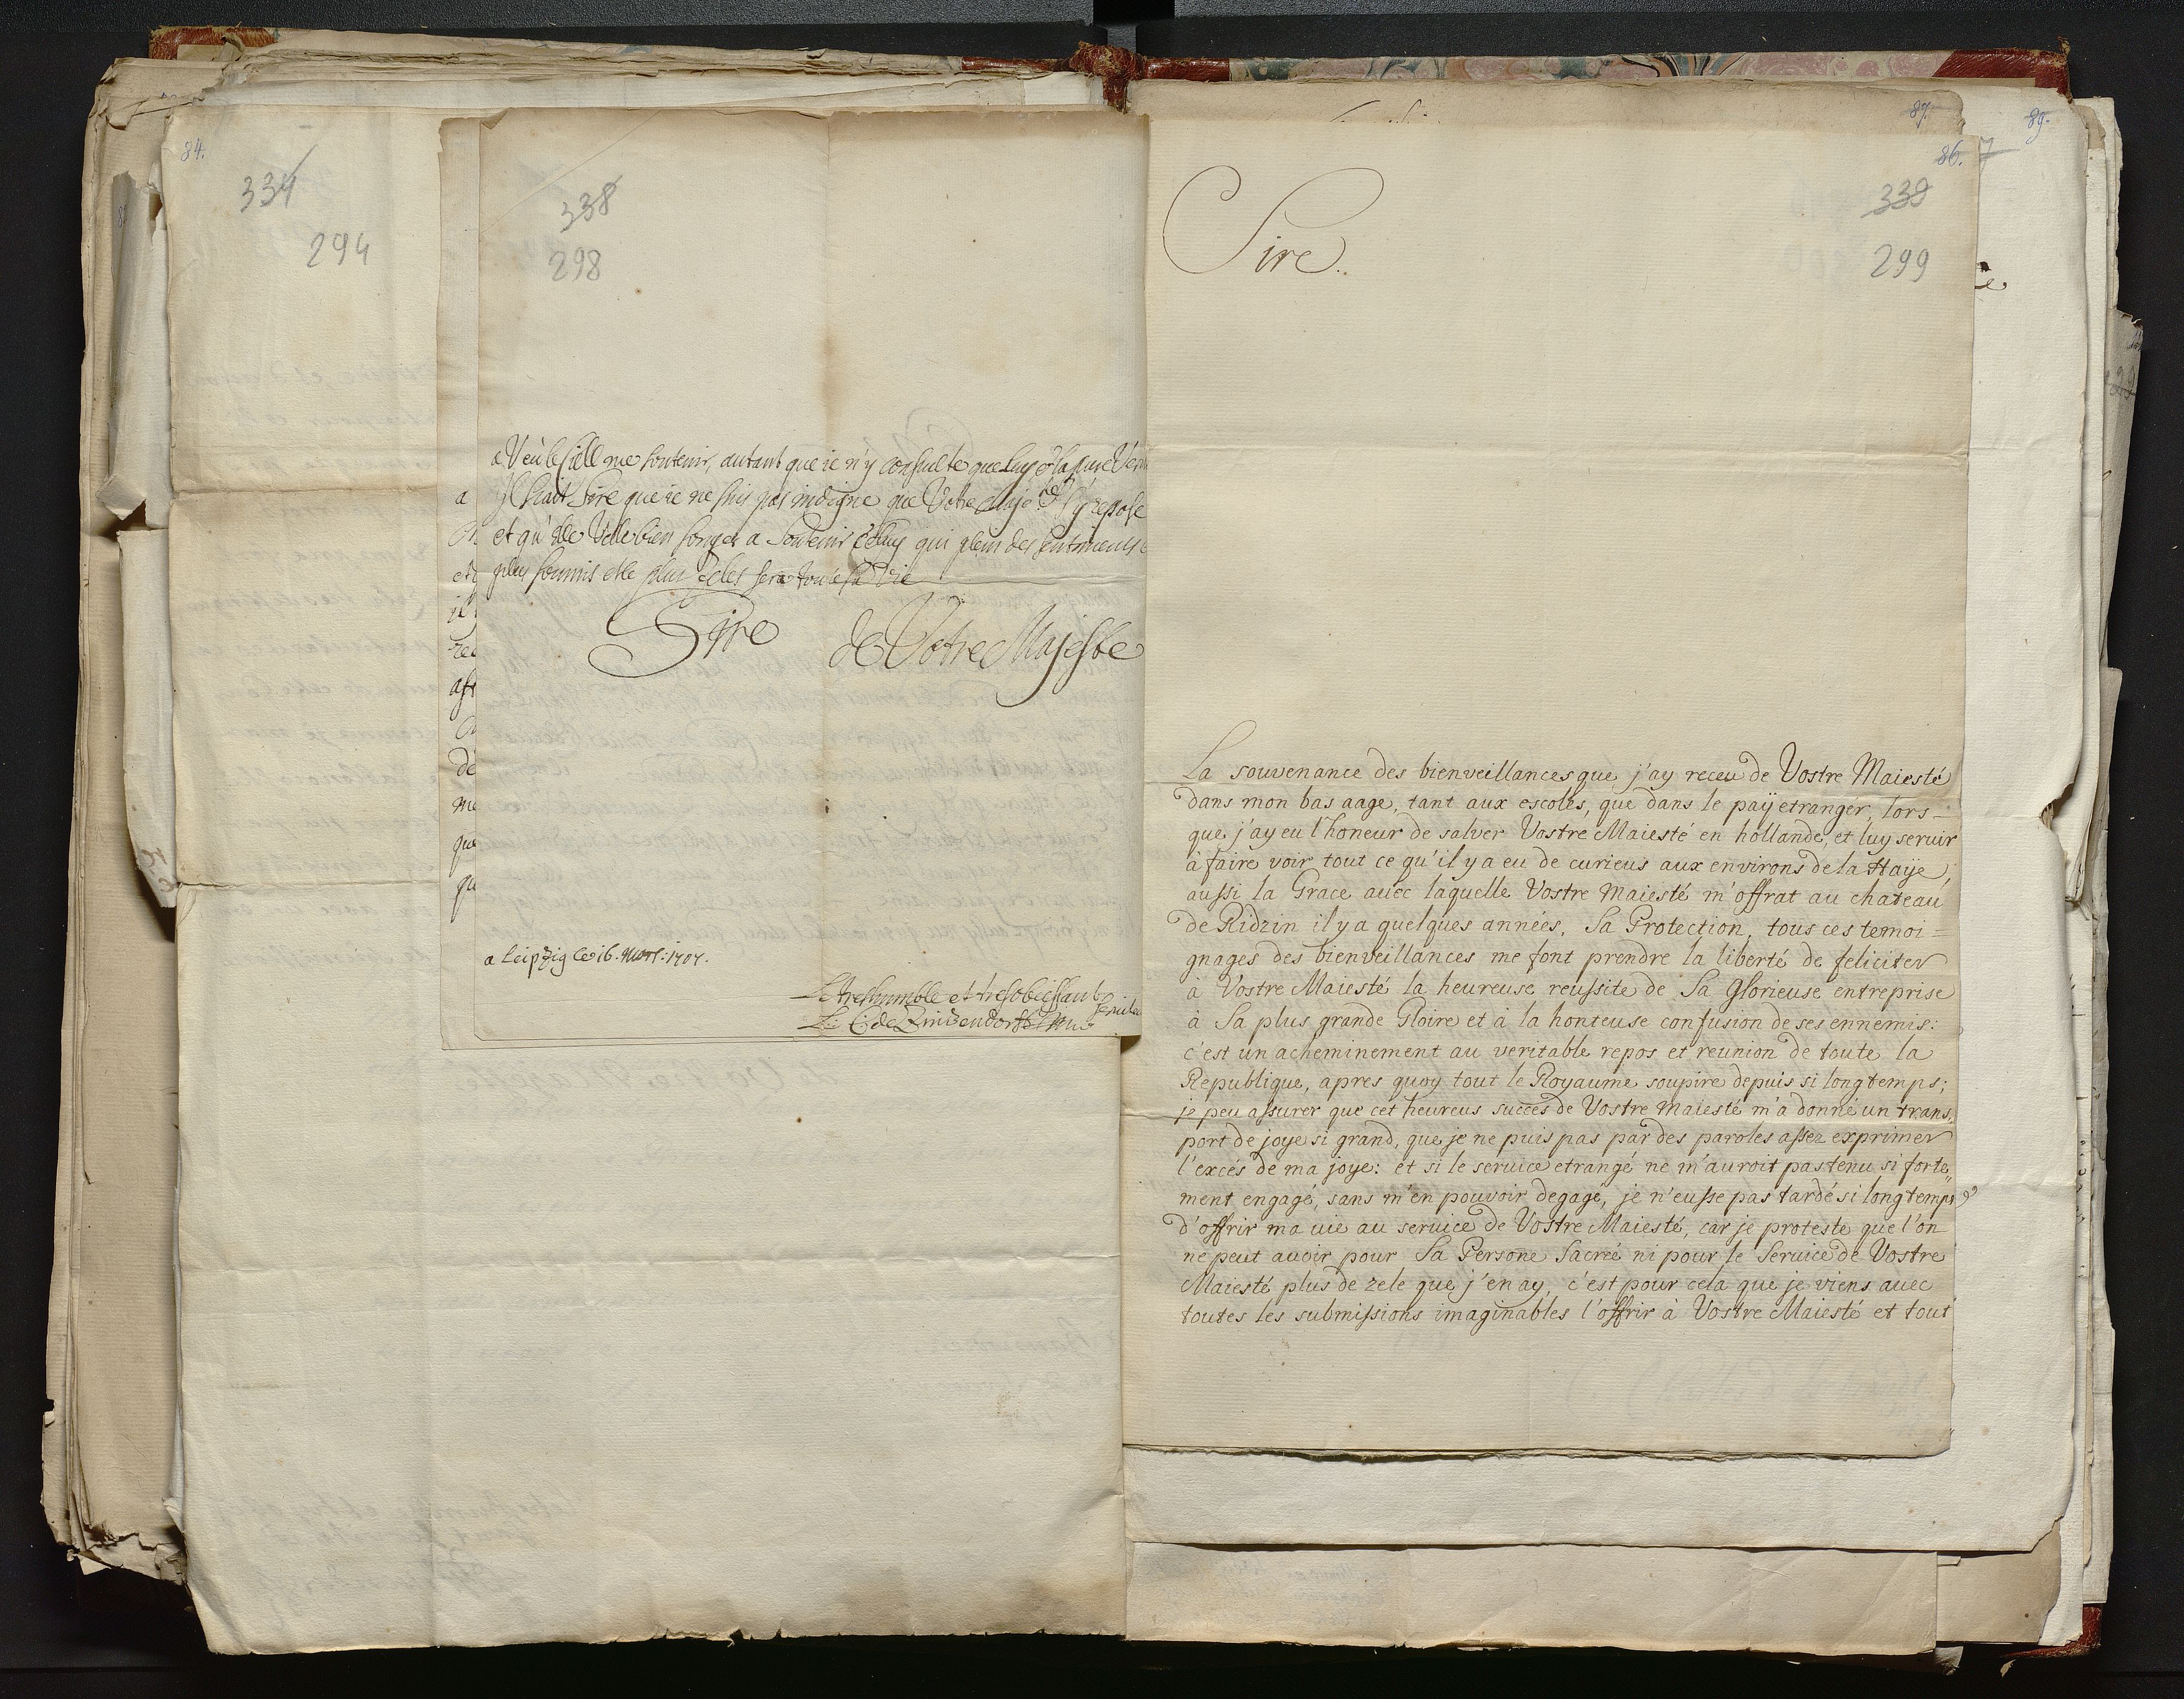 84.
334
294
338
298
a Veu le Ciell me soutenir, autant que ie n'y consulte que luy & la pure
Il scait Sire que ie ne suis pas indigne que Votre Maj.té s'y repose
et qu'elle Vele bien songer a soutenir Celuy qui plein des sentiments
plus soumis et le plus Zeles sera toute sa Vie
Sire de Votre Majeste
a Leipzig ce 16. 1707.
Le treshumble et tresobeissant
a
et
il
de
me
que
qu
87.
89.
86. 7
339
299
Sire.
La souvenance des bienveillances que j'ay receu de Vostre Maiesté
dans mon bas aage, tant aux escoles, que dans le paÿ etranger, lors-
que j'ay eu l'honeur de salver Vostre Maiesté en hollande, et luy seruir
à faire voir tout ce qu'il y a eu de curieus aux environs de la Haÿe,
aussi la Grace auec laquelle Vostre Maiesté m'offrat au chateau
de Ridzin il y a quelques années, Sa Protection, tous ces temoi=
gnages des bienveillances me font prendre la liberté de feliciter
à Vostre Maiesté la heureuse reussite de Sa Glorieuse entreprise
à Sa plus grande Gloire et à la honteuse confusion de ses ennemis:
c'est un acheminement au veritable repos et reunion de toute la
Republique, apres quoy tout le Royaume soupire depuis si long temps;
je peu assurer que cet heureus succes de Vostre Maiesté m'a donné un trans,
port de joye si grand, que je ne puis pas par des paroles assez exprimer
l'exces de ma joye: et si le seruice etrangé ne m'auroit pas tenu si forte,,
ment engagé, sans m'en pouvoir degagé, je n'eusse pas tardé si long temps
d'offrir ma uie au seruice de Vostre Maiesté, car je proteste que l'on
ne peut auoir pour Sa Persone Sacreé ni pour le Seruice de Vostre
Maiesté plus de zele que j'en ay, c'est pour cela que je viens auec
toutes les submissions imaginables l'offrir à Vostre Maiesté et tout